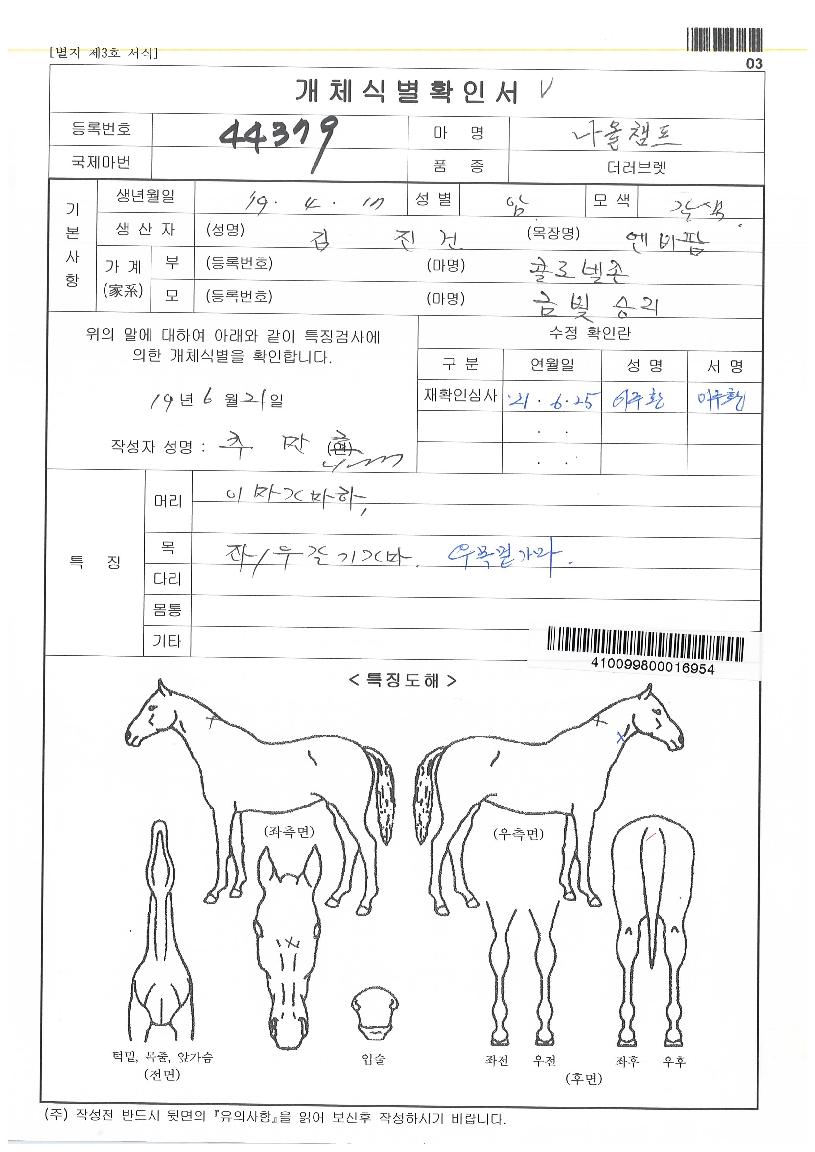 [별지 제3호 서식]
03
개체식별확인서 V
등록번호 44379 마 명 나올챔프
국제마번 품 종 더러브렛
기본사항
생년월일 '19. 4. 17 성별 암 모색 갈색
생 산 자 (성명) 김 진 건 (목장명) 엔비팜
가 계 (家系) 부 (등록번호) (마명) 콜로넬존
모 (등록번호) (마명) 금빛 승리
위의 말에 대하여 아래와 같이 특징검사에
의한 개체식별을 확인합니다.
19년 6월 21일
작성자 성명 : 추 만 (인)
수정 확인란
구 분 연월일 성 명 서 명
재확인심사 '21. 6. 25 이주환 이주환
. .
. .
특 징
머리 이마가마하,
목 좌/우갈기가마. 우목곁가마.
다리
몸통
기타
410099800016954
< 특징도해 >
(좌측면)
(우측면)
턱밑, 목줄, 앞가슴
(전면)
입술
좌전 우전 좌후 우후
(후면)
(주) 작성전 반드시 뒷면의 『유의사항』을 읽어 보신후 작성하시기 바랍니다.